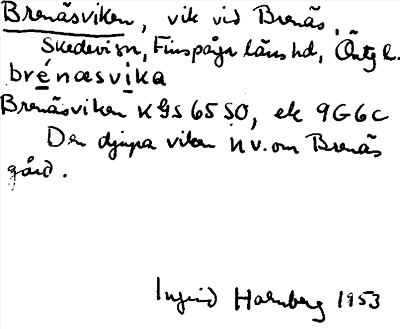 Brenäsviken, vik vid Brenäs,
Skedevi sn, Finspånga läns hd, Östg l.
brénæsvika
Brenäsviken KGS 65 SO, ek 9G6c
Den djupa viken n v. om Brenäs
gård.
Ingrid Harnberg 1953